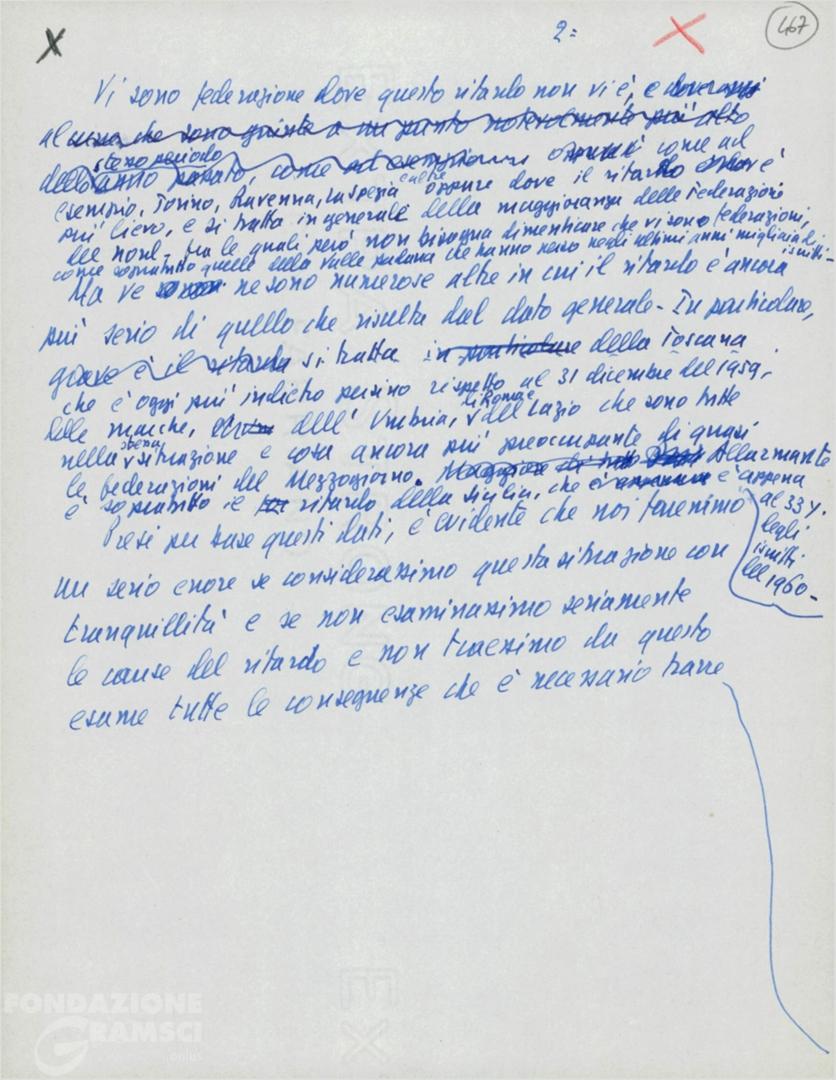 2=
467
Vi sono federazione dove questo ritardo non vi è, e
al che sono giunte a un punto notevolmente più alto
stesso periodo
dello anno passato, come ad esempio come ad
esempio, Torino, Ravenna, La Spezia e altre oppure dove il ritardo è
più lieve, e si tratta in generale della maggioranza delle Federazioni
del nord, tra le quali però non bisogna dimenticare che vi sono federazioni,
come sopratutto quelle della Valle padana che hanno perso negli ultimi anni migliaia di iscritti-
Ma ve ne sono numerose altre in cui il ritardo è ancora
più serio di quello che risulta dal dato generale- In particolare,
grave è il ritardo si tratta in particolare della Toscana
che è oggi più indietro persino rispetto al 31 dicembre del 1959,
delle Marche, dell'Umbria, di Roma e del Lazio che sono tutte
nella stessa situazione e cosa ancora più preoccupante di quasi
le federazioni del Mezzogiorno. Allarmante
è sopratutto il ritardo della Sicilia, che è appena
al 33%
degli
iscritti
del 1960-
Presi per base questi dati, è evidente che noi faremmo
un serio errore se considerassimo questa situazione con
tranquillità e se non esaminassimo seriamente
le cause del ritardo e non traessimo da questo
esame tutte le conseguenze che è necessario trarre
FONDAZIONE
GRAMSCI
onlus